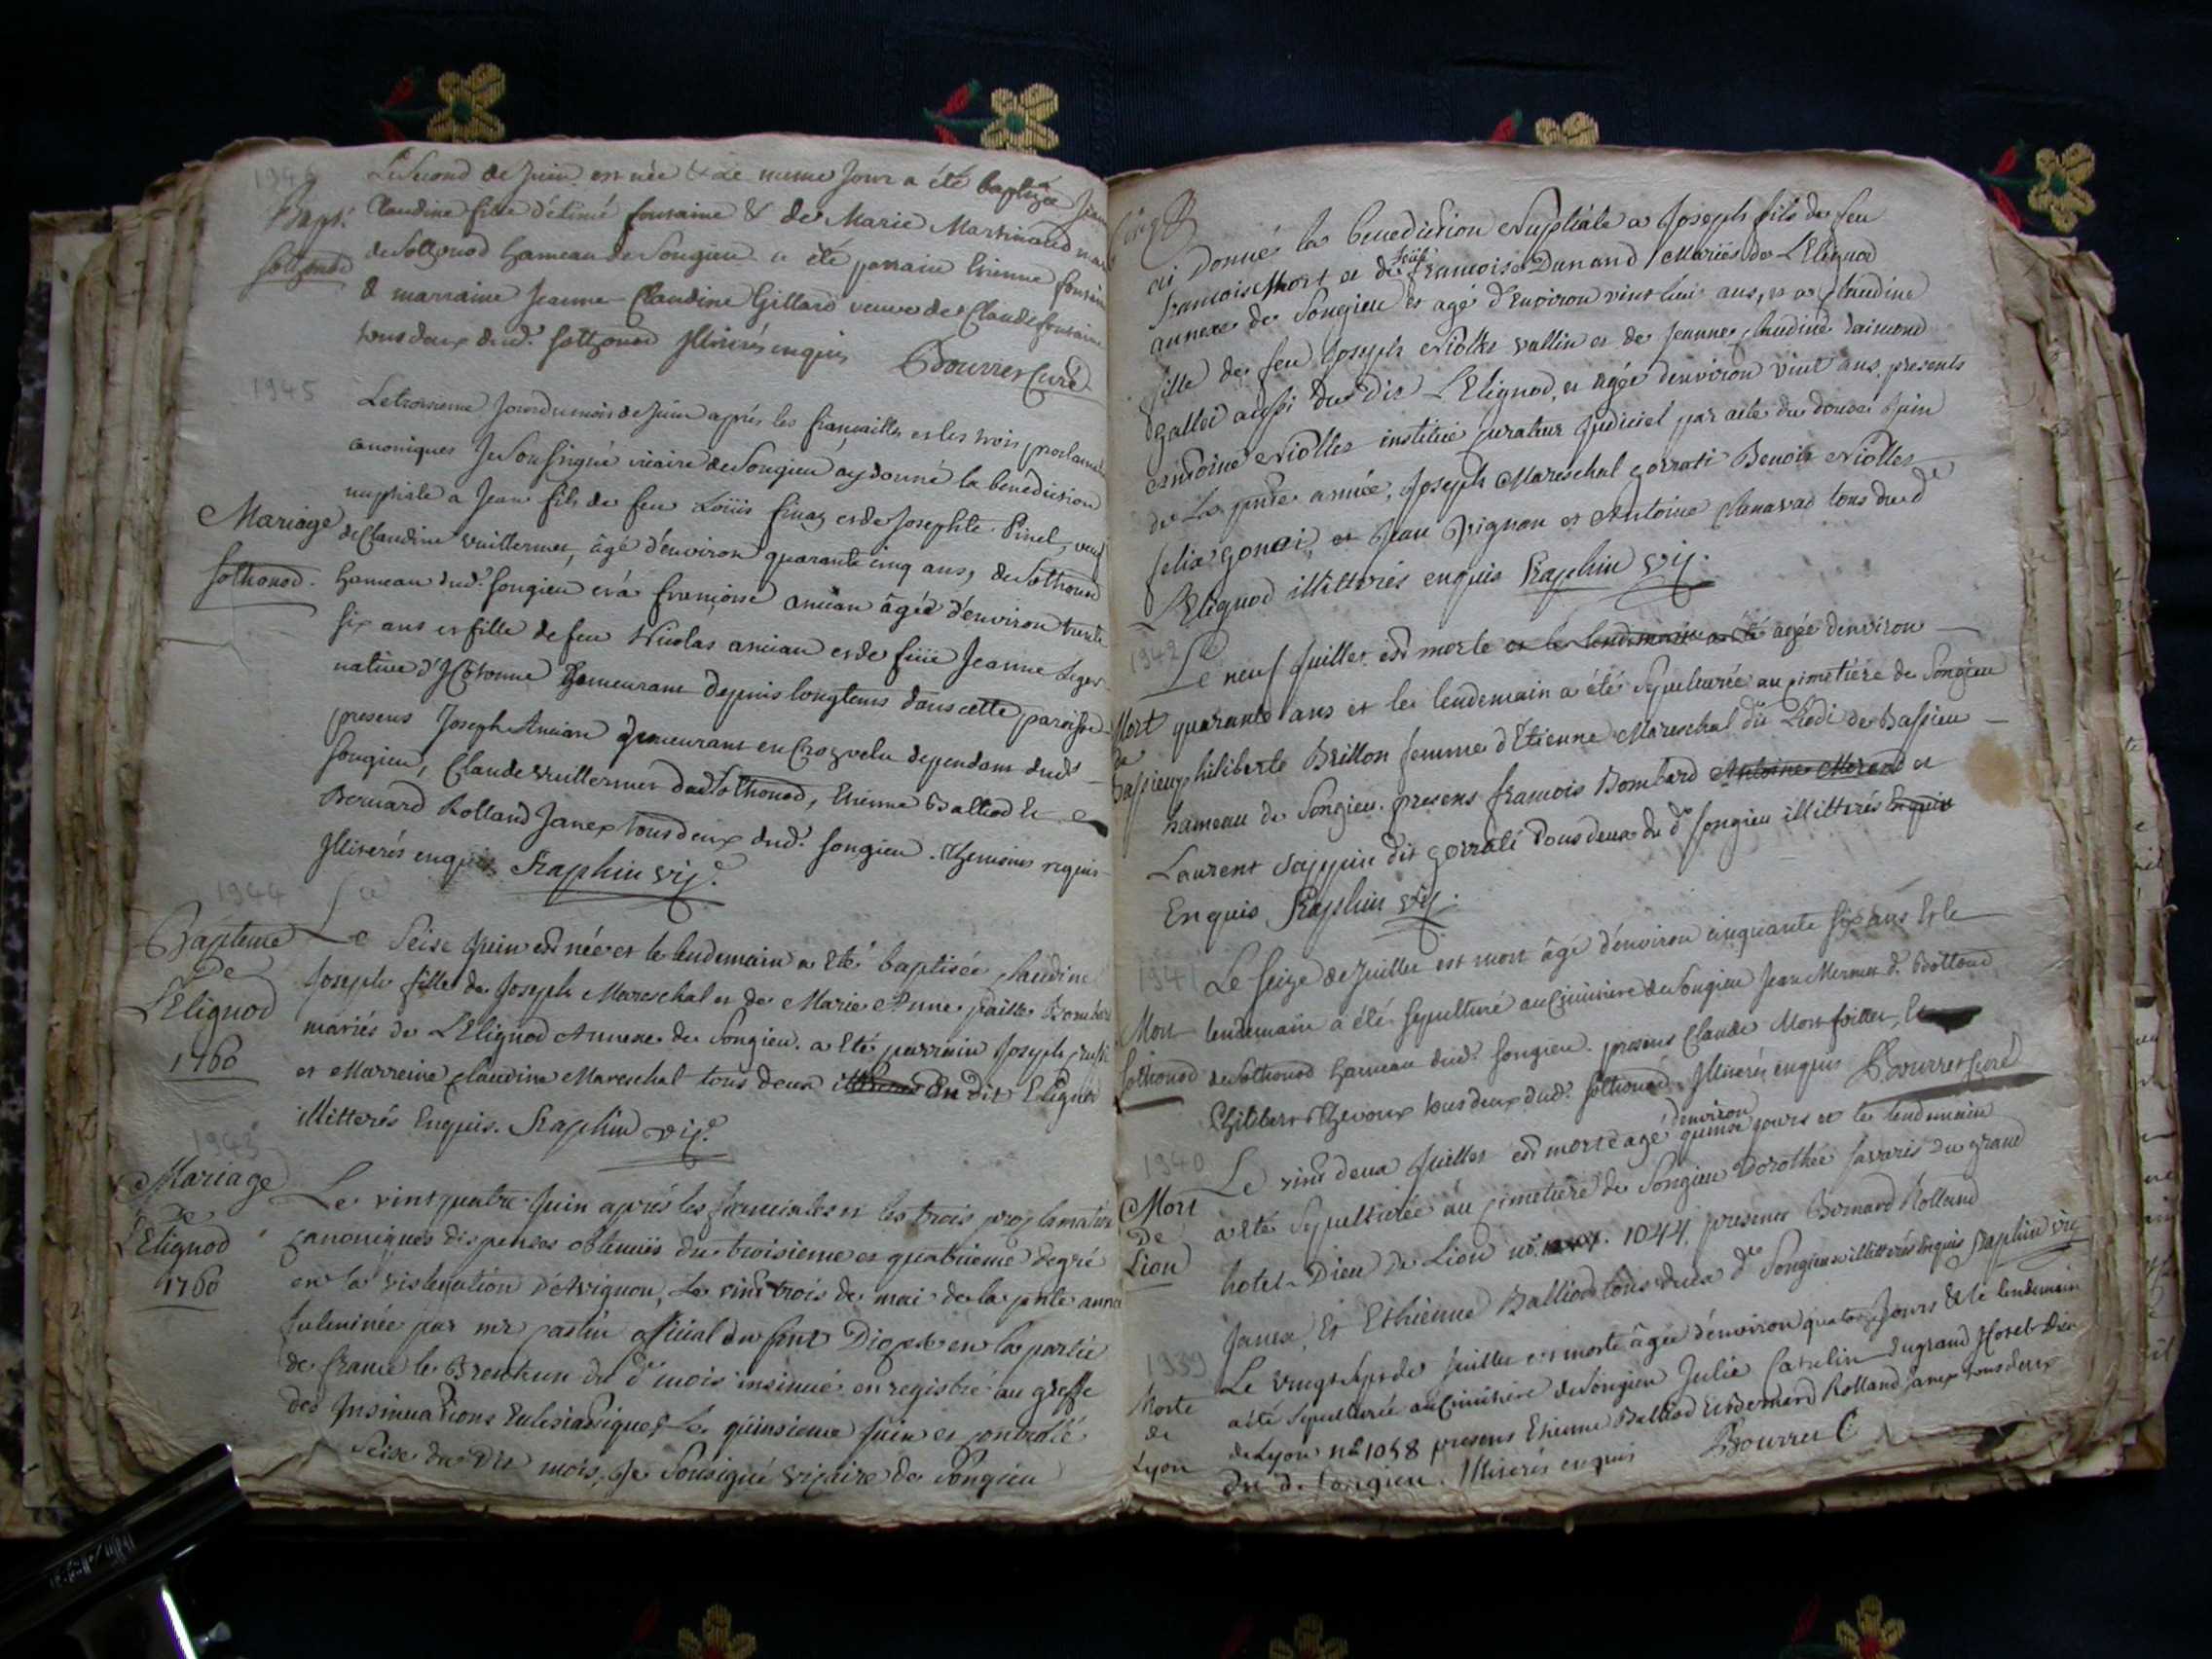 1946
Le Second de Juin est née & Le meme Jour a été baptizée
Bapt. Claudine fille d'étiené fontaine & de Marie Martinand
Sothonod de Sothonod hameau de Songieu a été parrain Etienne fontaine
& marraine Jeanne Claudine Gillard veuve de Claude fontaine
tous deux dud. Sothonod Illiterés enquis Bourret Curé
1945
Le troisieme Jour du mois de Juin aprés les fiancailles et les trois
canoniques Je Soussigné vicaire de Songieu ay donné la benediction
nuptiale a Jean fils de feu Loüis et de Josephte Pinel, veuf
Mariage de Claudine Vuillermet, âgé d'environ quarante cinq ans, de Sothonod
Sothonod. hameau dud. Songieu et à françoise Ancian âgée d'environ trente
six ans et fille de feu Nicolas Ancian et de füe Jeanne Leger
native d'hotonne demeurant depuis longtems dans cette paroisse
presens Joseph Ancian demeurant en dependant dud
Songieu, Claude Vuillermet dud Sothonod, Etienne Balliod &
Bernard Rolland Janex tous deux dud. Songieu. temoins requis
Illiterés enquis Raphin vic.
1944
Bapteme Le Seise Juin est née et le lendemain a Eté baptisée Claudine
De Joseph fille de Joseph Mareschal et de Marie Anne
L'Elignod mariés de L'Elignod Annexe de Songieu. a Eté parrain Joseph
1760 et Marreine Claudine Mareschal tous deux du dit Elignod
illitterés Enquis. Raphin vic.
1943
Mariage Le vint quatre Juin aprés les fianciales et les trois proclamation
De canoniques dispenses obtenües du troisieme et quatrieme degré
L'Elignod en la vislegation d'Avignon, Le vint trois de mai de la pnte année
1760 fulminée par mr official du pnt Diocese en la partie
de france le trent un du d mois insinué enregistré au greffe
des Insinuations Eclesiastiques Le quinsieme Juin et controllé
Seise du dit mois, Je Sousigné vicaire de Songieu
ai Donné la benediction Nuptiale a Joseph fils de feu
francois Mort et de feüe francoise Dunand Mariés de L'Elignod
annexe de Songieu et agé d'Environ vint huit ans, et a Claudine
fille de feu Joseph Niolles vallin et de Jeanne Claudine
aussi du dit L'Elignod, et agée denviron vint ans, presents
antoine Niolles institüé Curateur Judiciel par acte du douse Juin
de La pnte année, Joseph Mareschal gorrati Benoit Niolles
felix et Jean et Antoine Chenavad tous du d
L'Elignod illitterés enquis Raphin vic.
1942
Le neuf Juillet est morte et le lendemain a été agée denviron
Mort quarante ans et le lendemain a été Sepulturée au cimetiére de Songieu
de philiberte Brillon femme d'Etienne Mareschal dit de Bassieu
Bassieu hameau de Songieu. presens francois Bombard Antoine et
Laurent dit gorrati tous deux du d Songieu illitterés Enquis
Enquis Raphin vic.
1941
Le seize de Juillet est mort âgé d'environ cinquante six ans Et le
Mort lendemain a été sepulturé au Cimitiere de Songieu Jean Mermet d. Bottoud
Sothonod de Sothonod hameau dud. Songieu. presens Claude Montfoillet, &
Philibert tous deux dud. Sothonod. Illiterés enquis Bourret Curé
1940
Le vint deux Juillet est morte agé denviron quinse jours et le lendemain
Mort a Eté Sepulturée au cimetiere de Songieu Dorothée Savaris du grand
De hotel-Dieu de Lion no. 1044. presens Bernard Rolland
Lion Janex, Et Ethienne Balliod tous deux d Songieu illitterés Enquis Raphin vic
1939
Le vingt de Juillet est morte âgée d'environ quatorze Jours & le lendemain
Morte a été sepulturée au Cimitiere de Songieu Julie Catelin du grand Hotel-Dieu
de de Lyon no 1058 presens Etienne Balliod & Bernard Rolland Janex tous deux
Lyon de Songieu. Illiterés enquis Bourret C